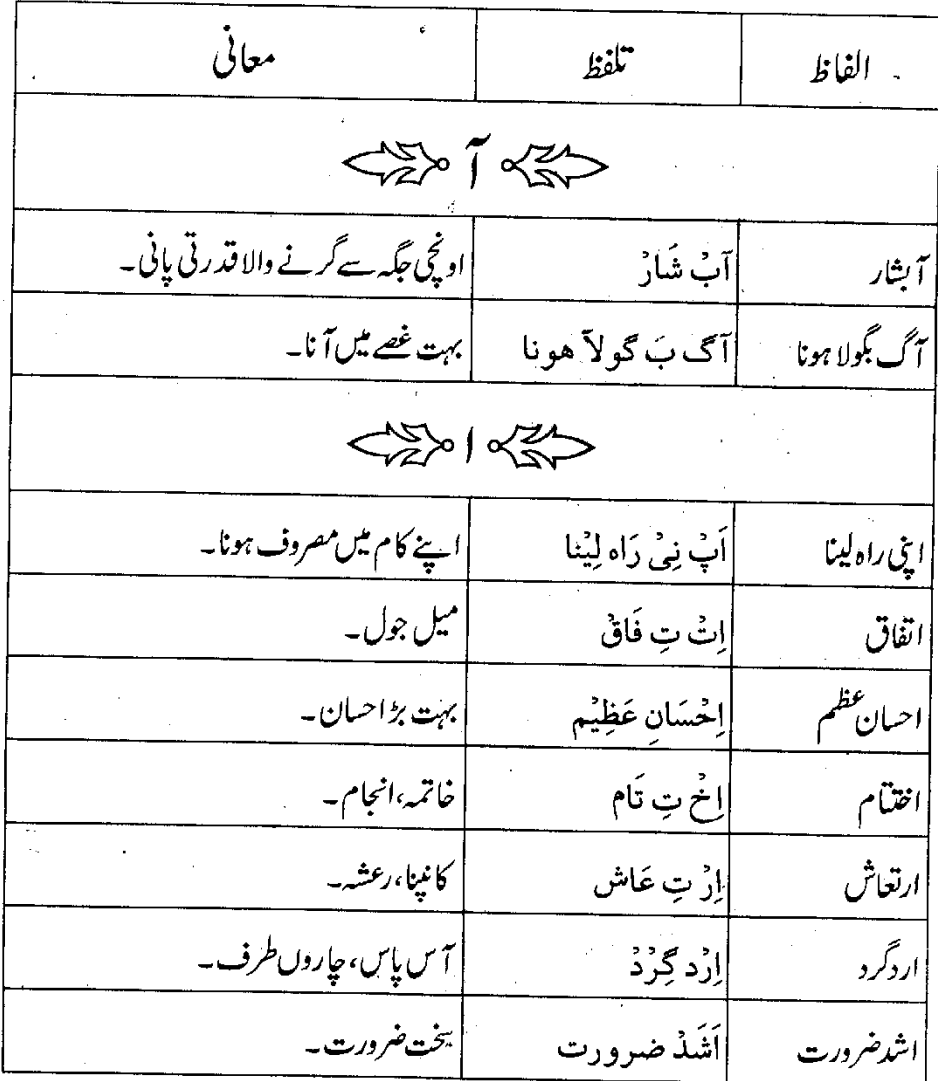 الفاظ تلفظ معانی
آ
آبشار آبْ شَارْ اونچی جگہ سے گرنے والا قدرتی پانی۔
آگ بگولا ہونا آگ بَ گولاَ ھونا بہت غصے میں آنا۔
ا
اپنی راہ لینا اَپْ نِیْ رَاہ لِیْنا اپنے کام میں مصروف ہونا۔
اتفاق اِتْ تِ فَاقْ میل جول۔
احسان عظم اِحْسَانِ عَظِیْم بہت بڑا احسان۔
اختتام اِخْ تِ تَام خاتمہ، انجام۔
ارتعاش اِرْ تِ عَاش کانپنا، رعشہ۔
اردگرد اِرْد گِرْدْ آس پاس، چاروں طرف۔
اشد ضرورت اَشَدْ ضرورت سخت ضرورت۔